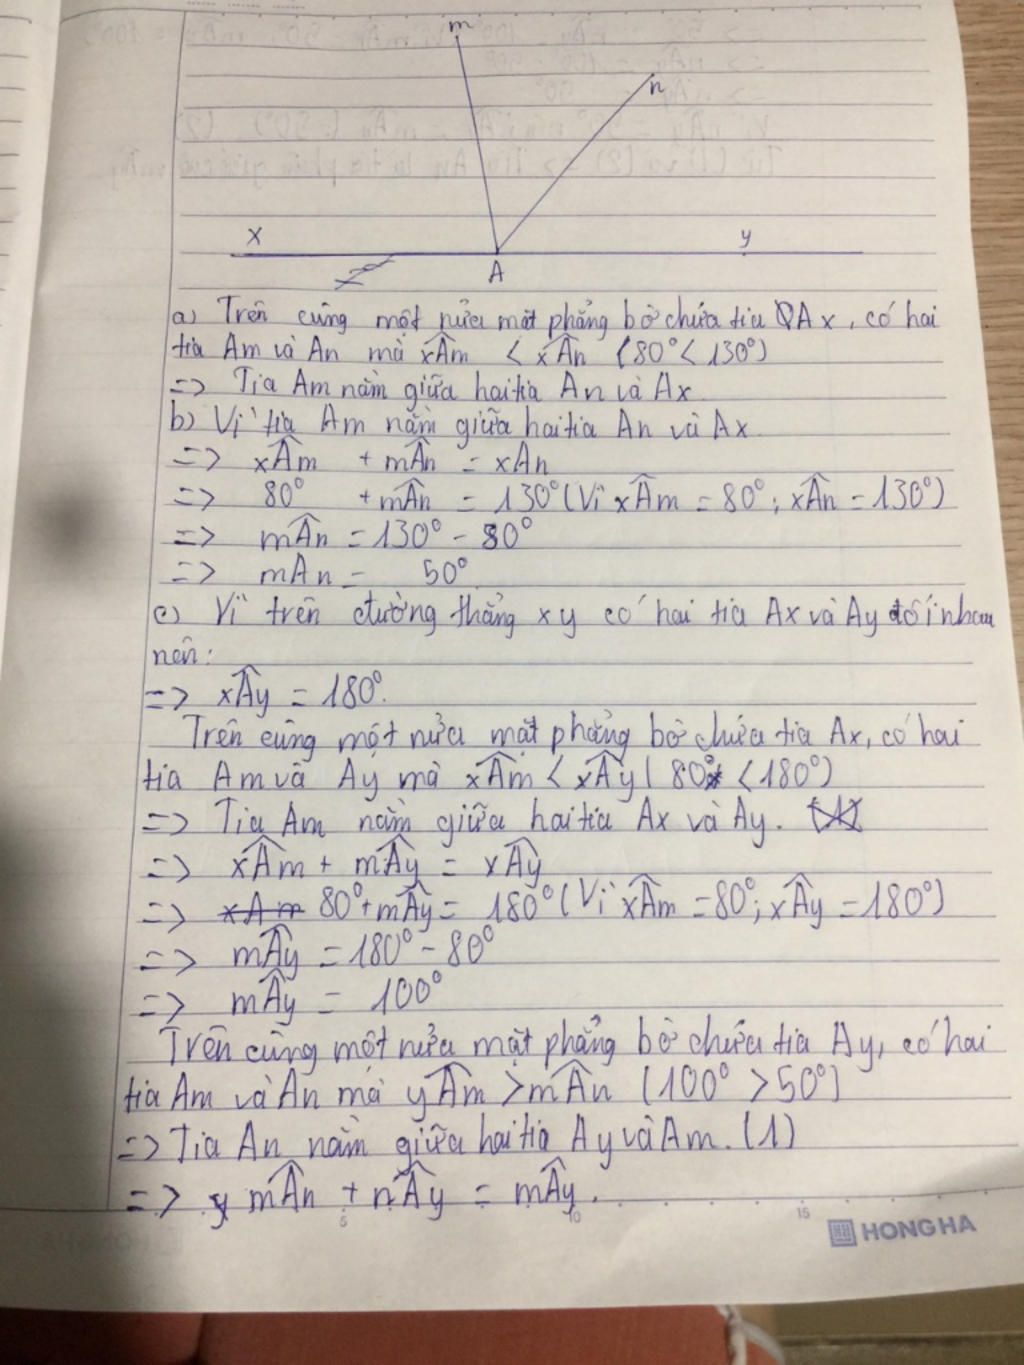 m
n
x
y
A
a) Trên cùng một nửa mặt phẳng bờ chứa tia Ax, có hai
tia Am và An mà xÂm < xÂn (80° < 130°)
=> Tia Am nằm giữa hai tia An và Ax
b) Vì tia Am nằm giữa hai tia An và Ax
=> xÂm + mÂn = xAn
=> 80° + mÂn = 130° (Vì xÂm = 80° ; xÂn = 130°)
=> mÂn = 130° - 80°
=> mAn = 50°
c) Vì trên đường thẳng xy có hai tia Ax và Ay đối nhau
nên:
=> xÂy = 180°.
Trên cùng một nửa mặt phẳng bờ chứa tia Ax, có hai
tia Am và Ay mà xÂm < xÂy ( 80° < 180°)
=> Tia Am nằm giữa hai tia Ax và Ay.
=> xÂm + mÂy = xÂy
=> 80° + mÂy = 180° (Vì xÂm = 80° ; xÂy = 180°)
=> mÂy = 180° - 80°
=> mÂy = 100°
Trên cùng một nửa mặt phẳng bờ chứa tia Ay, có hai
tia Am và An mà yÂm > mÂn (100° > 50°)
=> Tia An nằm giữa hai tia Ay và Am. (1)
=> mÂn + nÂy = mÂy.
5 10 15
HONG HA